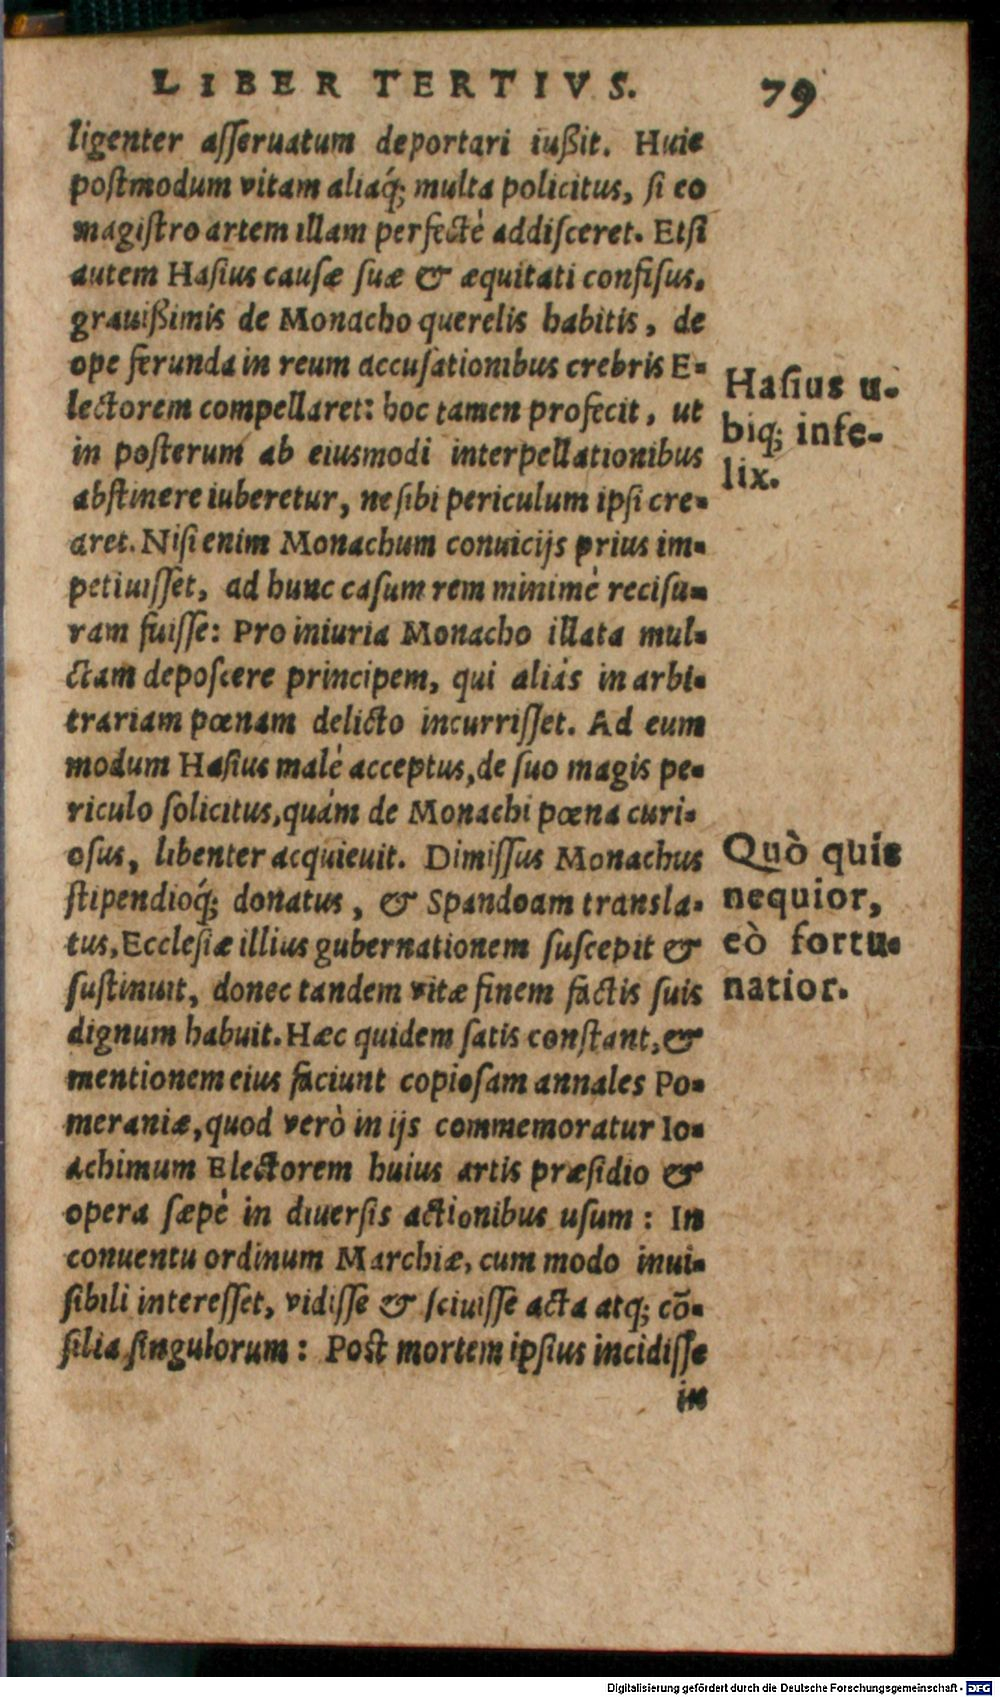 LIBER TERTIVS. 79
ligenter aſſeruatum deportari iußit. Huic
poſtmodum vitam aliaq́; multa policitus, ſi eo
magiſtro artem illam perfectè addiſceret. Etſi
autem Haſius cauſæ ſuæ & æquitati confiſus,
grauißimis de Monacho querelis habitis, de
ope ferunda in reum accuſationibus crebris E-
lectorem compellaret: hoc tamen profecit, ut
in poſterum ab eiusmodi interpellationibus
abſtinere iuberetur, ne ſibi periculum ipſi cre-
aret. Niſi enim Monachum conuicijs prius im-
petiuiſſet, ad hunc caſum rem minimè reciſu-
ram fuiſſe: Pro iniuria Monacho illata mul-
ctam depoſcere principem, qui aliás in arbi-
trariam pœnam delicto incurriſſet. Ad eum
modum Haſius malè acceptus, de ſuo magis pe-
riculo ſolicitus, quám de Monachi pœna curi-
oſus, libenter acquieuit. Dimiſſus Monachus
ſtipendioq́; donatus, & Spandoam transla-
tus, Eccleſiæ illius gubernationem ſuſcepit &
ſuſtinuit, donec tandem vitæ finem factis ſuis
dignum habuit. Hæc quidem ſatis conſtant, &
mentionem eius faciunt copioſam annales Po-
meraniæ, quod verò in ijs commemoratur Io-
achimum Electorem huius artis præſidio &
opera ſæpè in diuerſis actionibus uſum: In
conuentu ordinum Marchiæ, cum modo inui-
ſibili intereſſet, vidiſſe & ſciuiſſe acta atq; cō-
ſilia ſingulorum: Poſt mortem ipſius incidiſſe
in
Haſius u-
biq; infe-
lix.
Quò quis
nequior,
eò fortu-
natior.
Digitalisierung gefördert durch die Deutsche Forschungsgemeinschaft - DFG